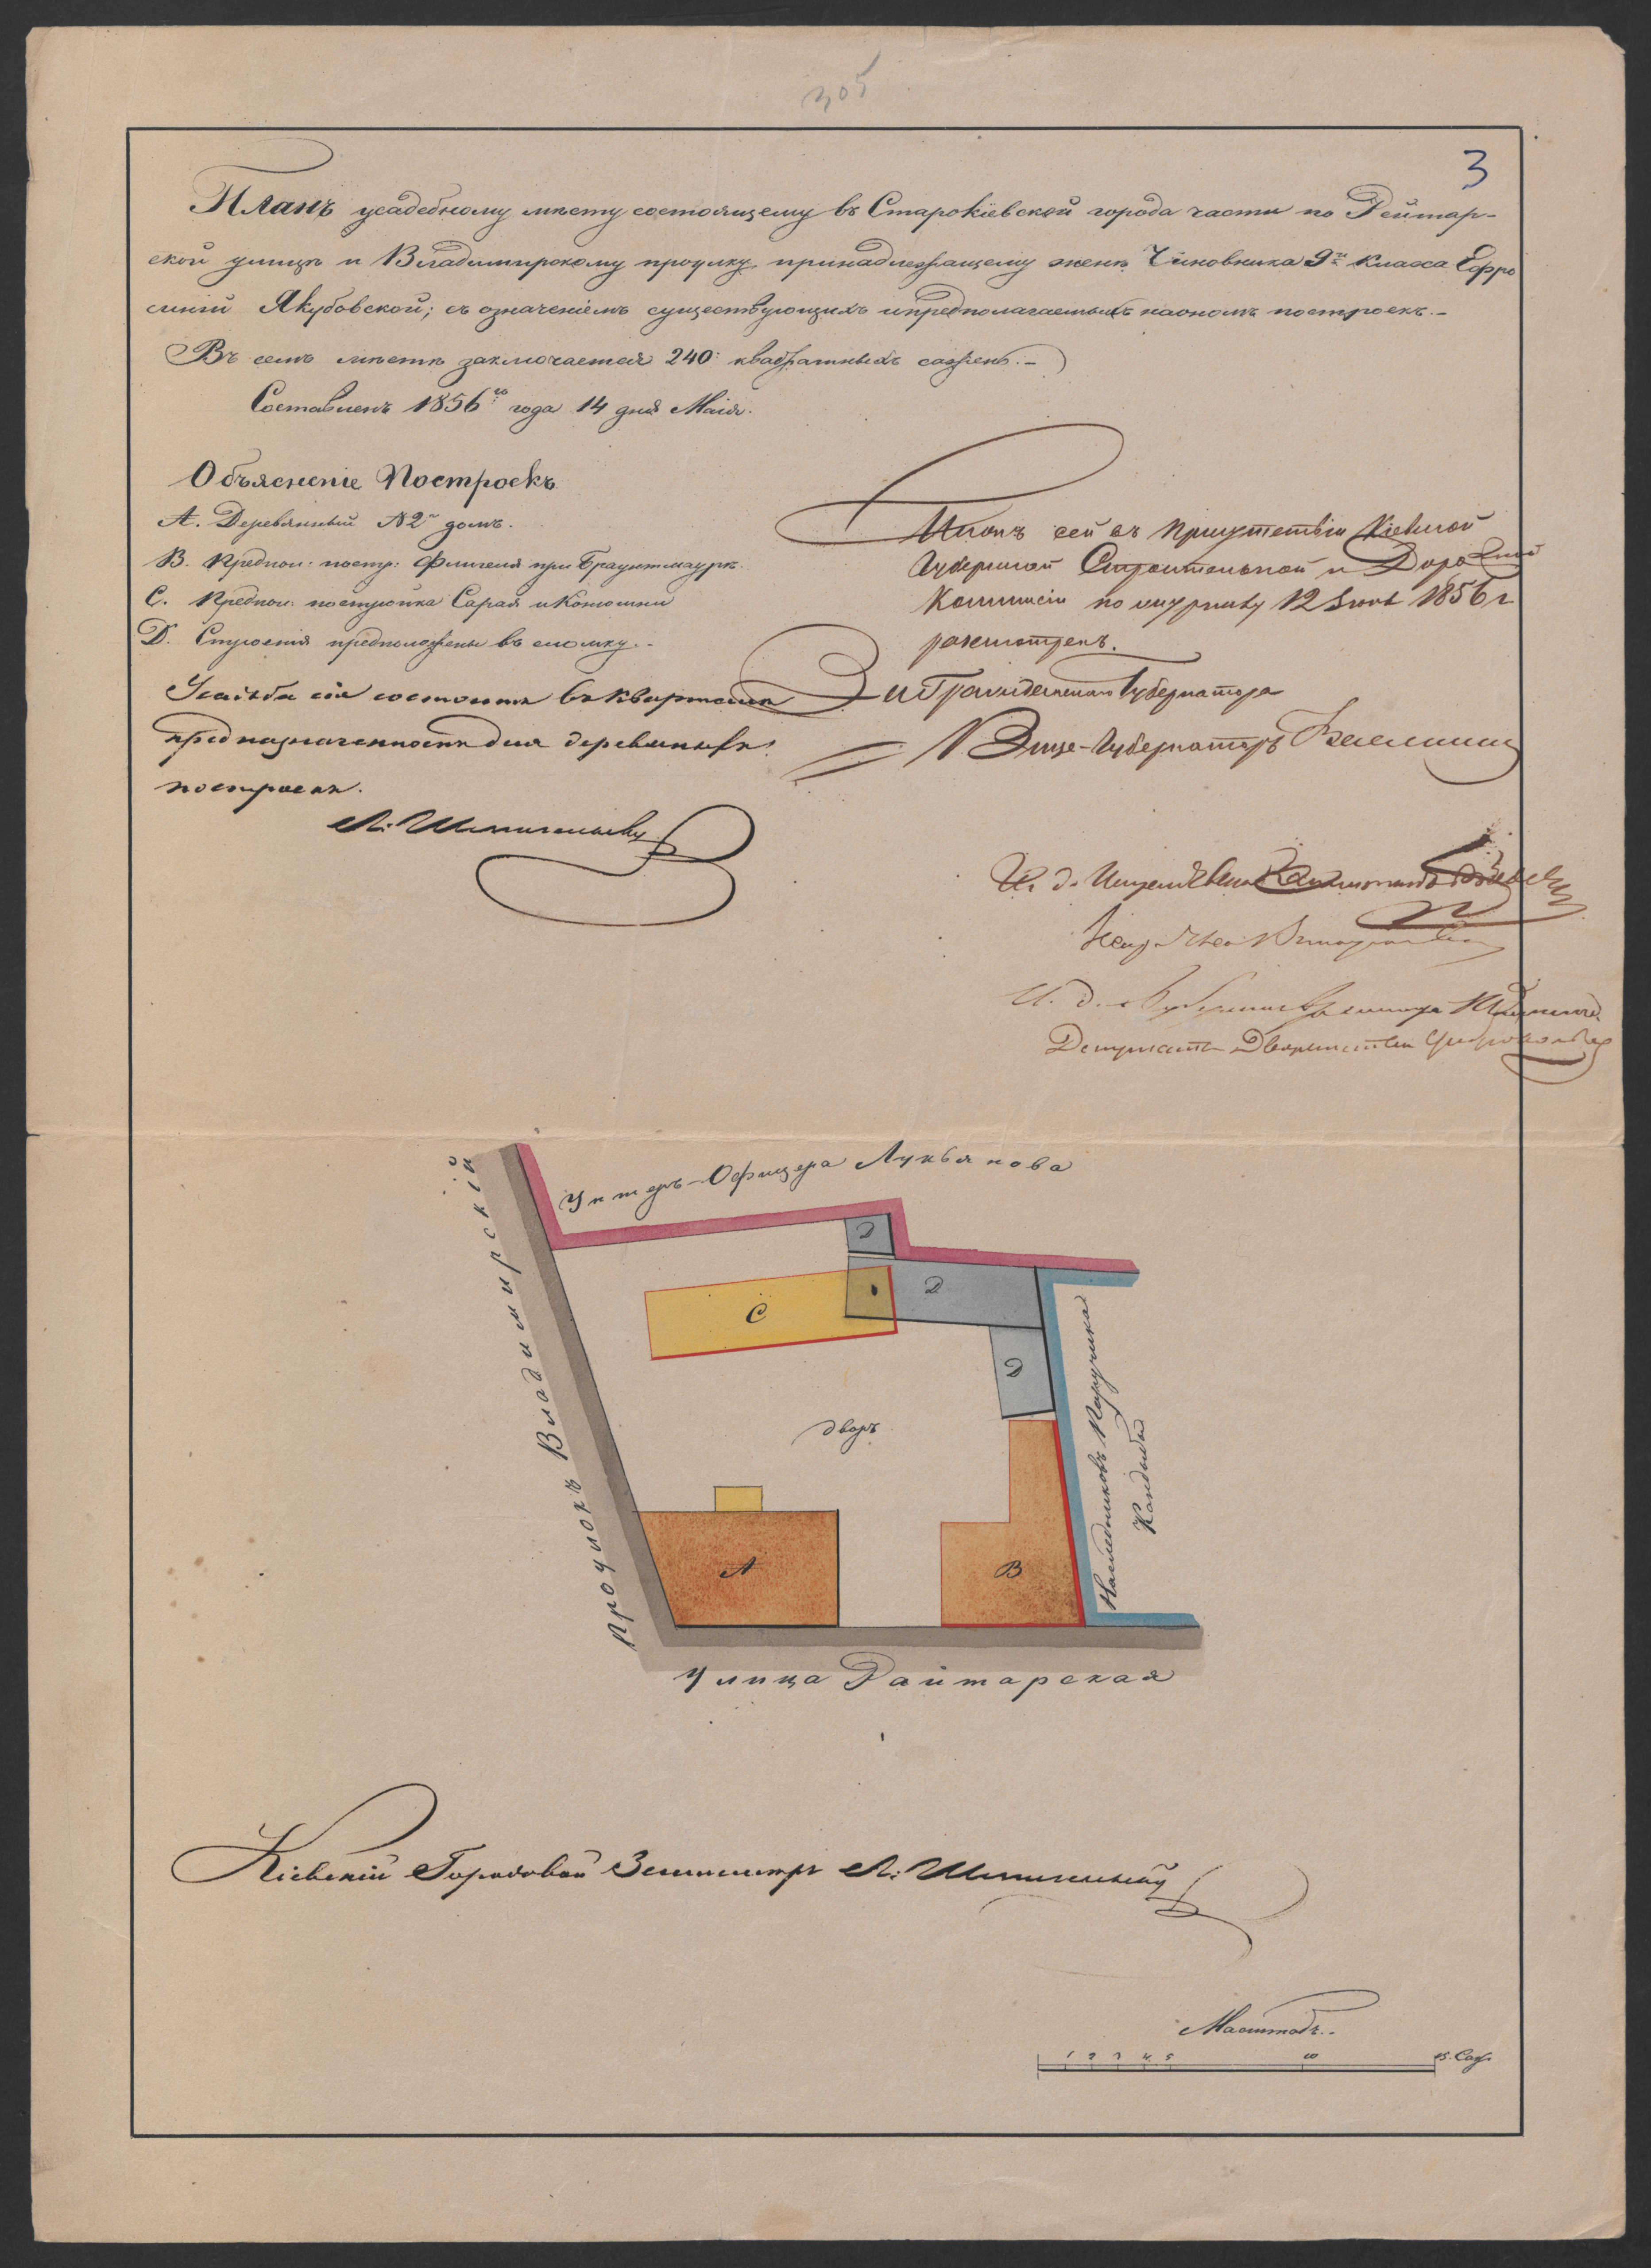 305
3
Планъ усадебному мѣсту состоящему въ Старокіевской города части по Рейтар-
ской улицѣ и Владимирскому проулку, принадлежащему женѣ Чиновника 9го Класса Ефро
синіи Якубовской; съ означеніемъ существующихъ и предполагаемыхъ на ономъ построекъ.-
Въ семъ мѣстѣ заключается 240: квадратныхъ сажень.-
Составленъ 1856го года 14 дня Маія.
Объясненіе Построекъ
А. Деревянный домъ.
В. Предпол: постр: Флигеля при Брантмаурѣ.
С. Предпол: постройка Сарая и Конюшни
D. Строенія предположены въ сломку.-
Усадьба сія состоитъ въ кварталѣ
предназначенномъ для деревяныхъ
построекъ.
Планъ сей въ присутствіи Кіевской
Губернской Строительной и Дорожной
Коммисіи по журналу 12 Іюня 1856 г
разсмотренъ.
За Гражданскаго Губернатора
Вице-Губернаторъ
И. д.
И. д.
Депутатъ Дворянства
Унтеръ-Офицера Лукьянова
Проулокъ Владимирскій
D
D
С
D
дворъ
Наследниковъ Поручика
Кандыбы
А
В
Улица Райтарская
Кіевскій Городовой Землемѣръ Л:
Масштабъ.
1 2 3 4 5 10 15. Саж.